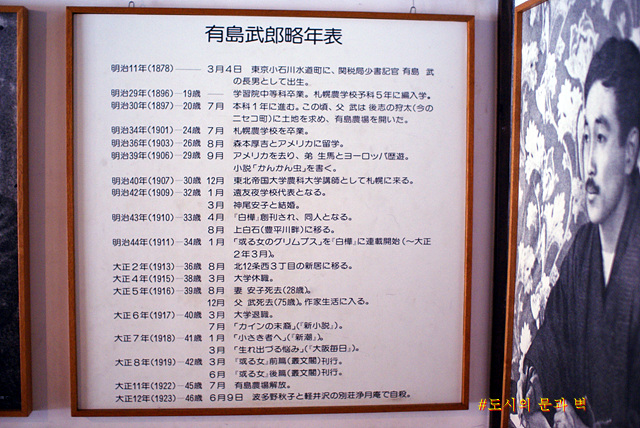 有島武郎略年表
明治11年(1878)── 3月4日 東京小石川水道町に、関税局少書記官 有島 武
の長男として出生。
明治29年(1896)─19歳 ── 学習院中等科卒業。札幌農学校予科5年に編入学。
明治30年(1897)─20歳 7月 本科1年に進む。この頃、父 武は 後志の狩太(今の
ニセコ町)に土地を求め、有島農場を開いた。
明治34年(1901)─24歳 7月 札幌農学校を卒業。
明治36年(1903)─26歳 8月 森本厚吉とアメリカに留学。
明治39年(1906)─29歳 9月 アメリカを去り、弟 生馬とヨーロッパ歴遊。
小説「かんかん虫」を書く。
明治40年(1907)─30歳 12月 東北帝国大学農科大学講師として札幌に来る。
明治42年(1909)─32歳 1月 遠友夜学校代表となる。
3月 神尾安子と結婚。
明治43年(1910)─33歳 4月 「白樺」創刊され、同人となる。
8月 上白石(豊平川畔)に移る。
明治44年(1911)─34歳 1月 「或る女のグリムプス」を「白樺」に連載開始(〜大正
2年3月)。
大正2年(1913)─36歳 8月 北12条西3丁目の新居に移る。
大正4年(1915)─38歳 3月 大学休職。
大正5年(1916)─39歳 8月 妻 安子死去(28歳)。
12月 父 武死去(75歳)。作家生活に入る。
大正6年(1917)─40歳 3月 大学退職。
7月 「カインの末裔」(「新小説」)。
大正7年(1918)─41歳 1月 「小さき者へ」(「新潮」)。
3月 「生れ出づる悩み」(「大阪毎日」)。
大正8年(1919)─42歳 3月 「或る女」前篇(叢文閣)刊行。
6月 「或る女」後篇(叢文閣)刊行。
大正11年(1922)─45歳 7月 有島農場解放。
大正12年(1923)─46歳 6月9日 波多野秋子と軽井沢の別荘浄月庵で自殺。
#도시의 문과 벽